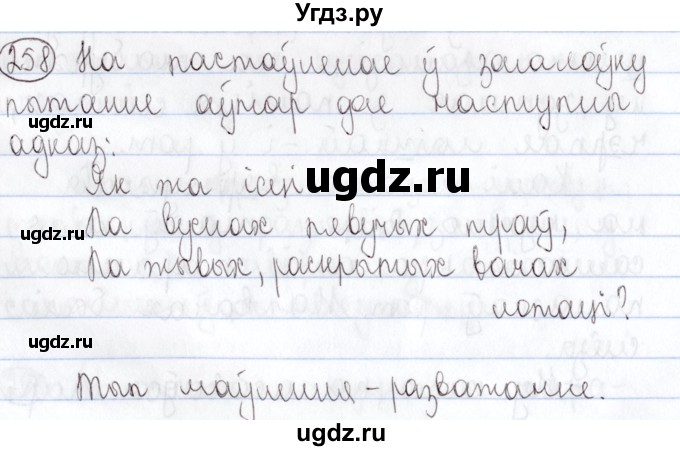 Угдз.ру
258 На пастаўленае ў загалоўку
пытанне аўтар дае наступны
адказ:
Як жа ісці
Па вуснах певучых траў,
Па жывых, раскрытых вачах
лотаці?
Тып маўлення – разважанне.
ugdz.ru
ugdz.ru
ugdz.ru
ugdz.ru
ugdz.ru
ugdz.ru